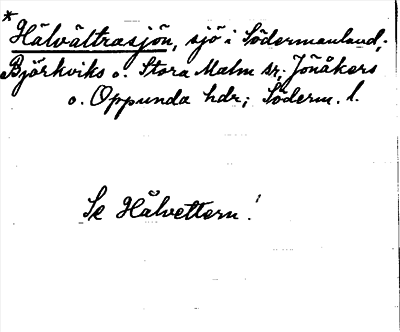 *
Hälvättrasjön, sjö i Södermanland;
Björkviks o. Stora Malm sr; Jönåkers
o. Oppunda hdr; Söderm. l.
Se Hälvettern!